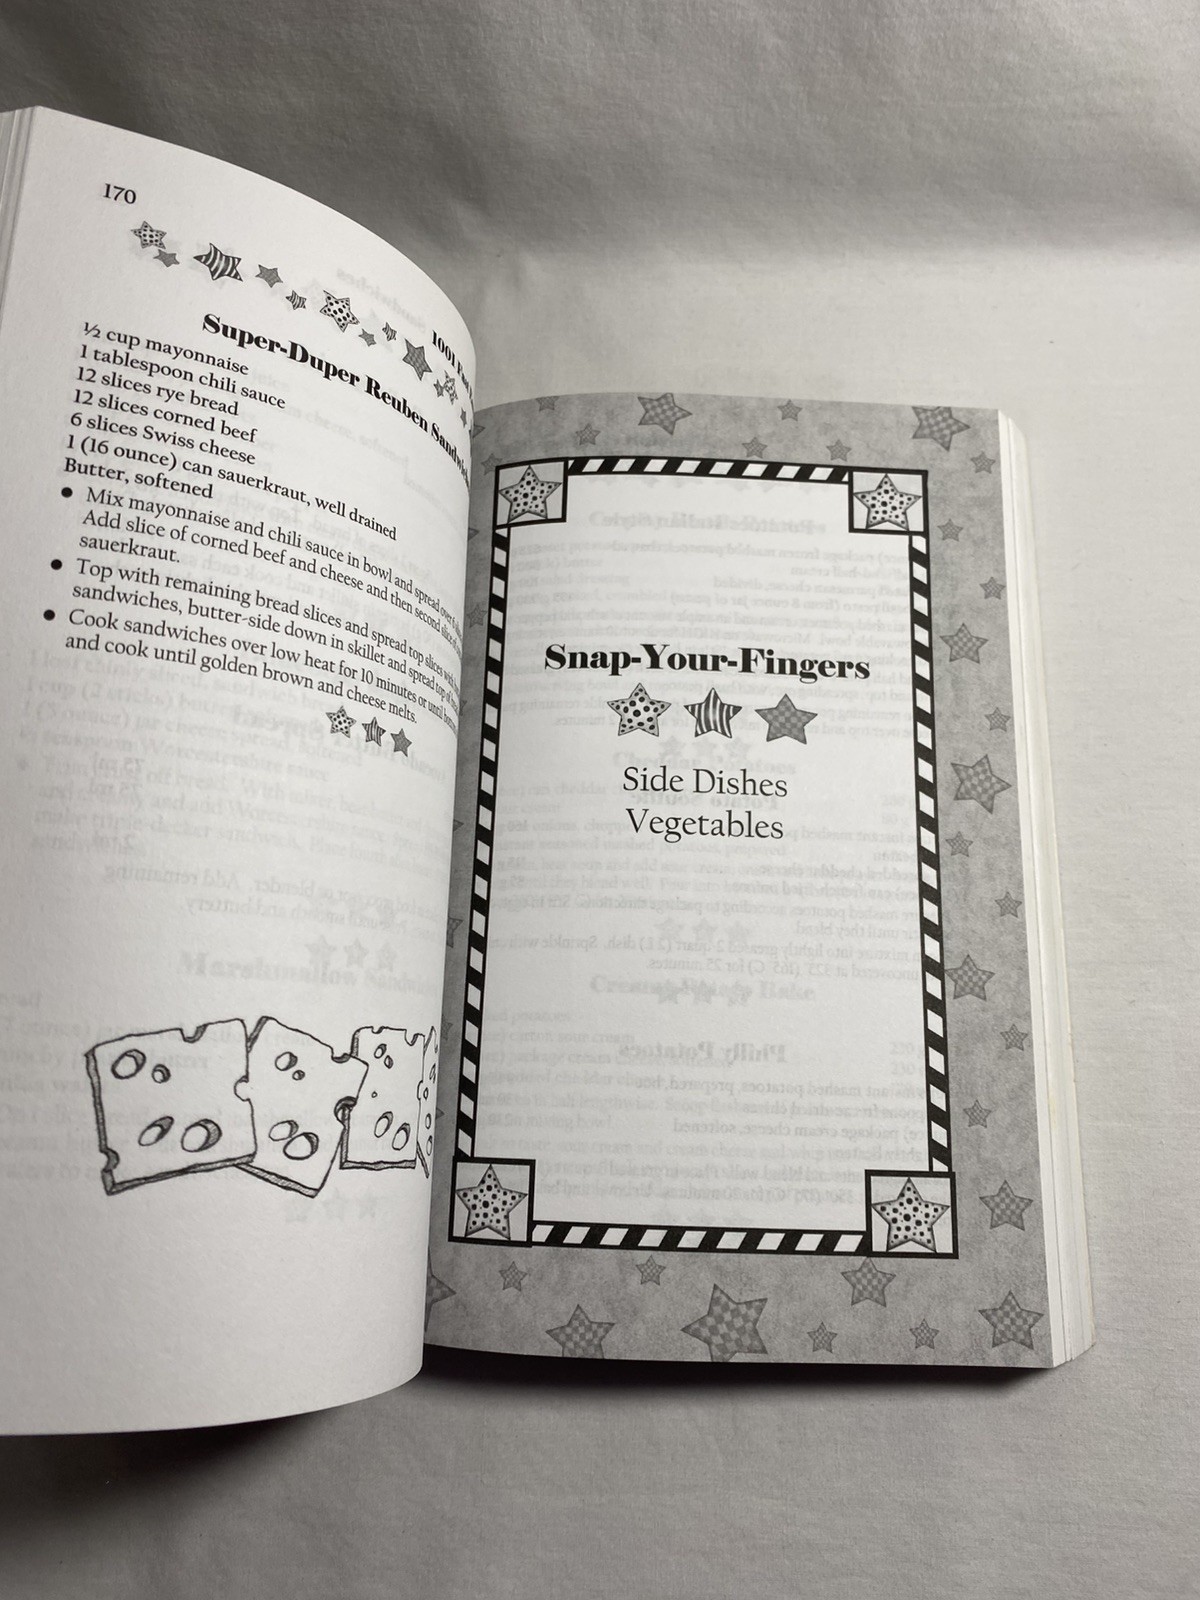 170
1001 Fast
Super-Duper Reuben
½ cup mayonnaise
1 tablespoon chili sauce
12 slices rye bread
12 slices corned beef
6 slices Swiss cheese
1 (16 ounce) can sauerkraut, well drained
Butter, softened
• Mix mayonnaise and chili sauce in bowl and spread over 6
Add slice of corned beef and cheese and then second slice of
sauerkraut.
• Top with remaining bread slices and spread top slices with
sandwiches, butter-side down in skillet and spread top of
and cook until golden brown and cheese melts.
• Cook sandwiches over low heat for 10 minutes or until
Snap-Your-Fingers
Side Dishes
Vegetables